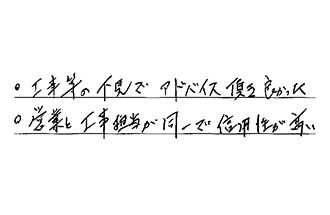 ○ 工事等の下見でアドバイス頂き良かった
○ 営業と工事担当が同一で信用性が高い